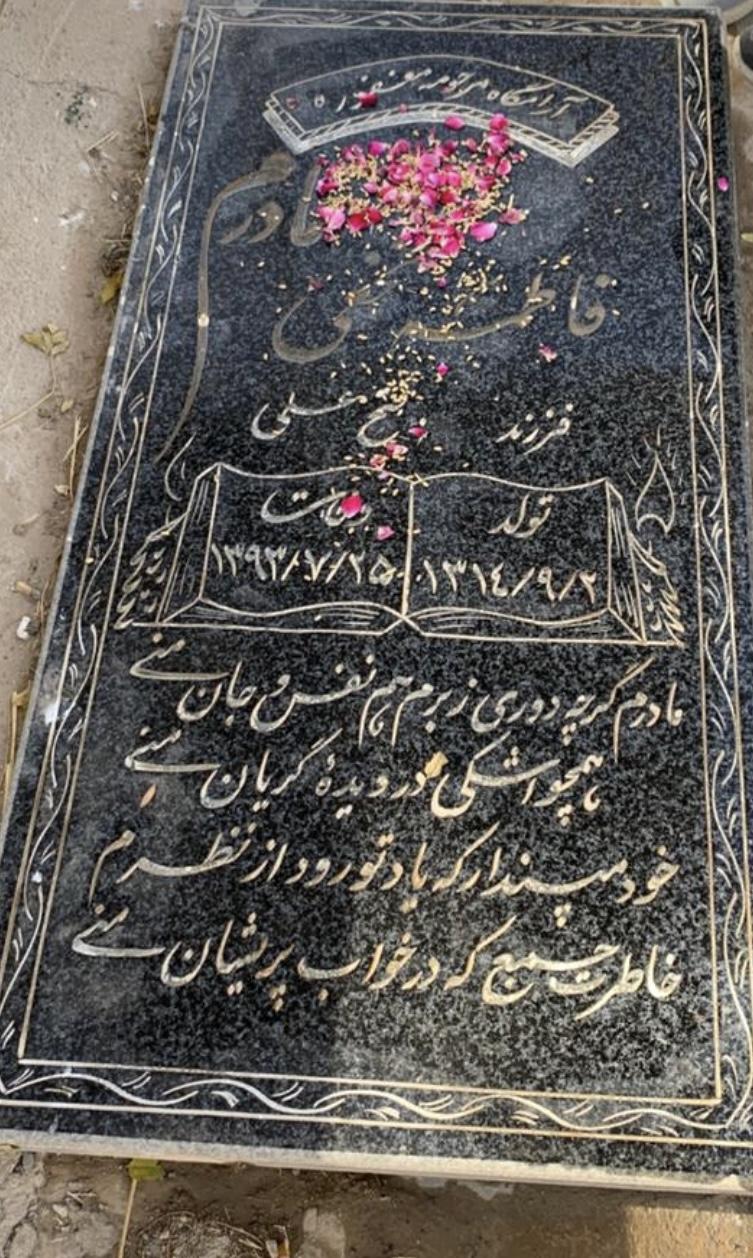 آرامگاه مرحومه مغفوره
مادرم
فاطمه
فرزند فتحعلی
تولد وفات
۱۳۱۴/۹/۲ ۱۳۹۳/۷/۲۵
مادرم گرچه دوری ز برم هم نفس و جان منے
همچو اشکی در دیدهٔ گریان منے
خود مپندار که یاد تو رود از نظرم
خاطرت جمع که در خواب پریشان منے